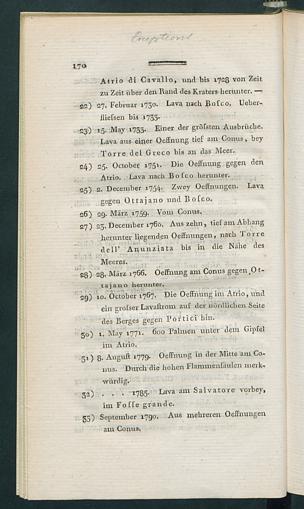 Eruptions
170
Atrio di Cavallo, und bis 1728 von Zeit
zu Zeit über den Rand des Kraters herunter. —
22) 27. Februar 1730. Lava nach Bosco. Ueber-
fliessen bis 1733.
23) 15. May 1733. Einer der grössten Ausbrüche.
Lava aus einer Oeffnung tief am Conus, bey
Torre del Greco bis an das Meer.
24) 25. October 1751. Die Oeffnung gegen den
Atrio. Lava nach Bosco herunter.
25) 2. December 1754. Zwey Oeffnungen. Lava
gegen Ottajano und Bosco.
26) 29. März 1759. Vom Conus.
27) 23. December 1760. Aus zehn, tief am Abhang
herunter liegenden Oeffnungen, nach Torre
dell' Anunziata bis in die Nähe des
Meeres.
28) 28. März 1766. Oeffnung am Conus gegen Ot-
tajano herunter.
29) 10. October 1767. Die Oeffnung im Atrio, und
ein grosser Lavastrom auf der nördlichen Seite
des Berges gegen Portici hin.
30) 1. May 1771. 600 Palmen unter dem Gipfel
im Atrio.
31) 8. August 1779. Oeffnung in der Mitte am Co-
nus. Durch die hohen Flammensäulen merk-
würdig.
32) . . . . 1785. Lava am Salvatore vorbey,
im Fosse grande.
33) September 1790. Aus mehreren Oeffnungen
am Conus.